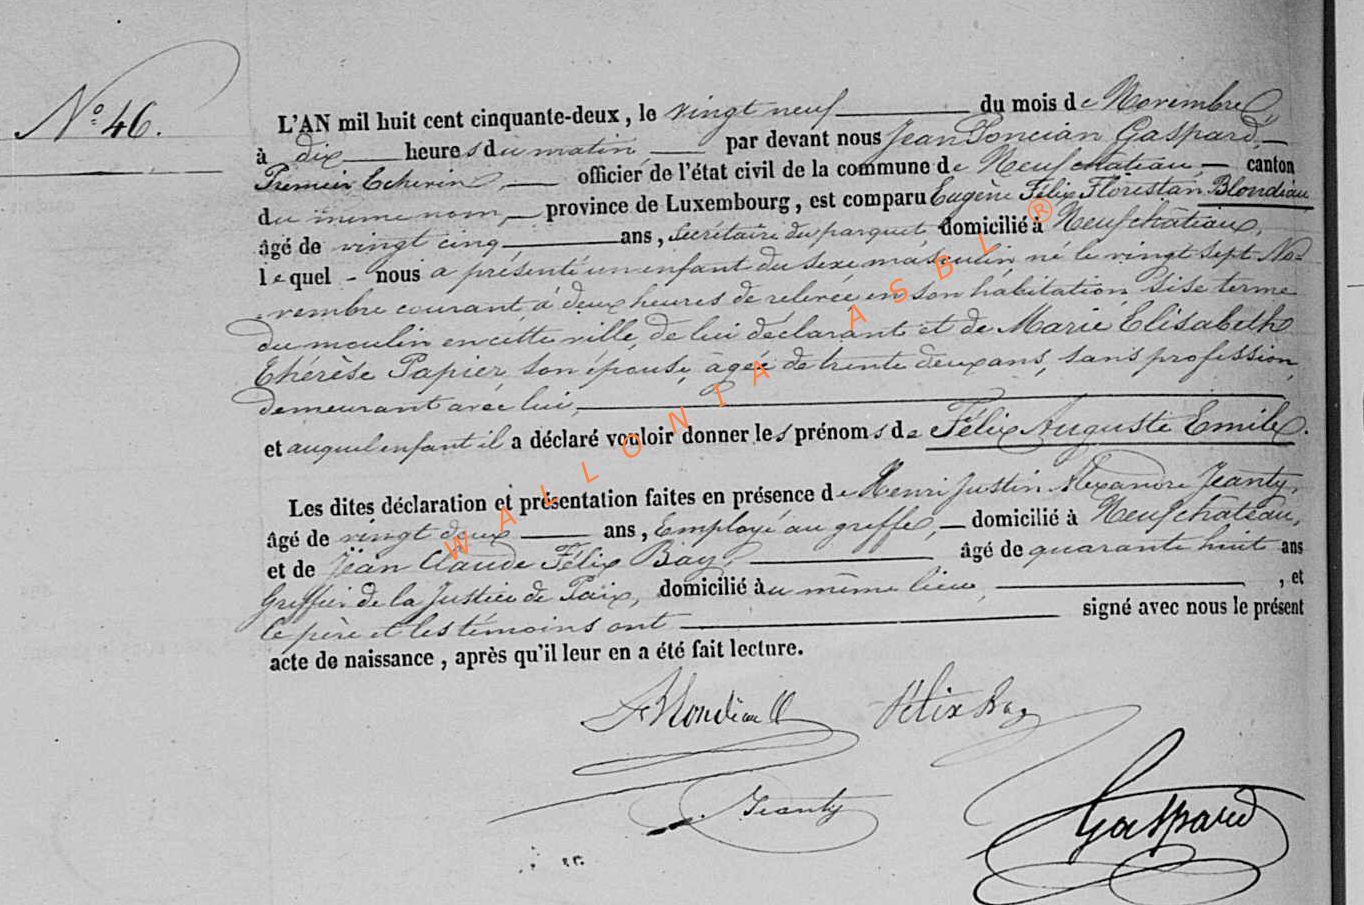 N° 46.
L'AN mil huit cent cinquante-deux, le vingt neuf du mois de Novembre,
à dix heures du matin par devant nous Jean Poncian Gaspard,
Premier Echevin, officier de l'état civil de la commune de Neufchateau, canton
du même nom, province de Luxembourg, est comparu Eugène Félix Florestan Blondiau
âgé de vingt cinq ans, Secrétaire du parquet domicilié à Neufchâteau,
lequel - nous a présenté un enfant du sexe masculin né le vingt sept No-
vembre courant, à deux heures de relevée en son habitation, sise terme
du moulin en cette ville, de lui déclarant et de Marie Elisabeth
Thérèse Papier, son épouse, âgée de trente deux ans, sans profession,
demeurant avec lui,
et auquel enfant il a déclaré vouloir donner les prénoms de Félix Auguste Emile.
Les dites déclaration et présentation faites en présence de Henri Justin Alexandre Jeanty,
âgé de vingt deux ans, Employé au greffe, domicilié à Neufchateau,
et de Jean Claude Félix Bay, âgé de quarante huit ans
Greffier de la Justice de Paix, domicilié au même lieu, , et
le père et les témoins ont signé avec nous le présent
acte de naissance, après qu'il leur en a été fait lecture.
Blondiau Félix Bay
Jeanty
Gaspard
WALLONIA ASBL ®